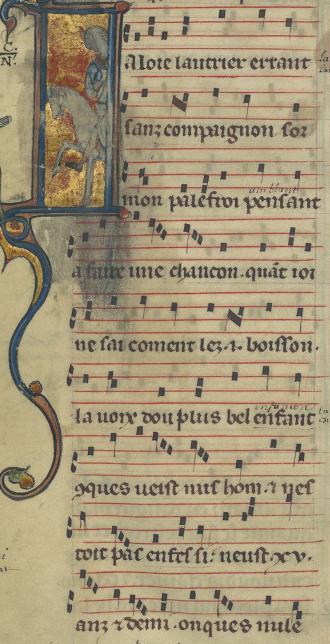 Aloie lautrier errant
sanz compaignon sor
mon palefroi pensant
a faire une chancon. quāt ioi
ne sai coment lez .i. boisson.
la uoix dou plus bel enfant
ɔques ueist nus hom. ⁊ nes
toit pas enfes si. neust xv.
anz ⁊ demi. onques nule